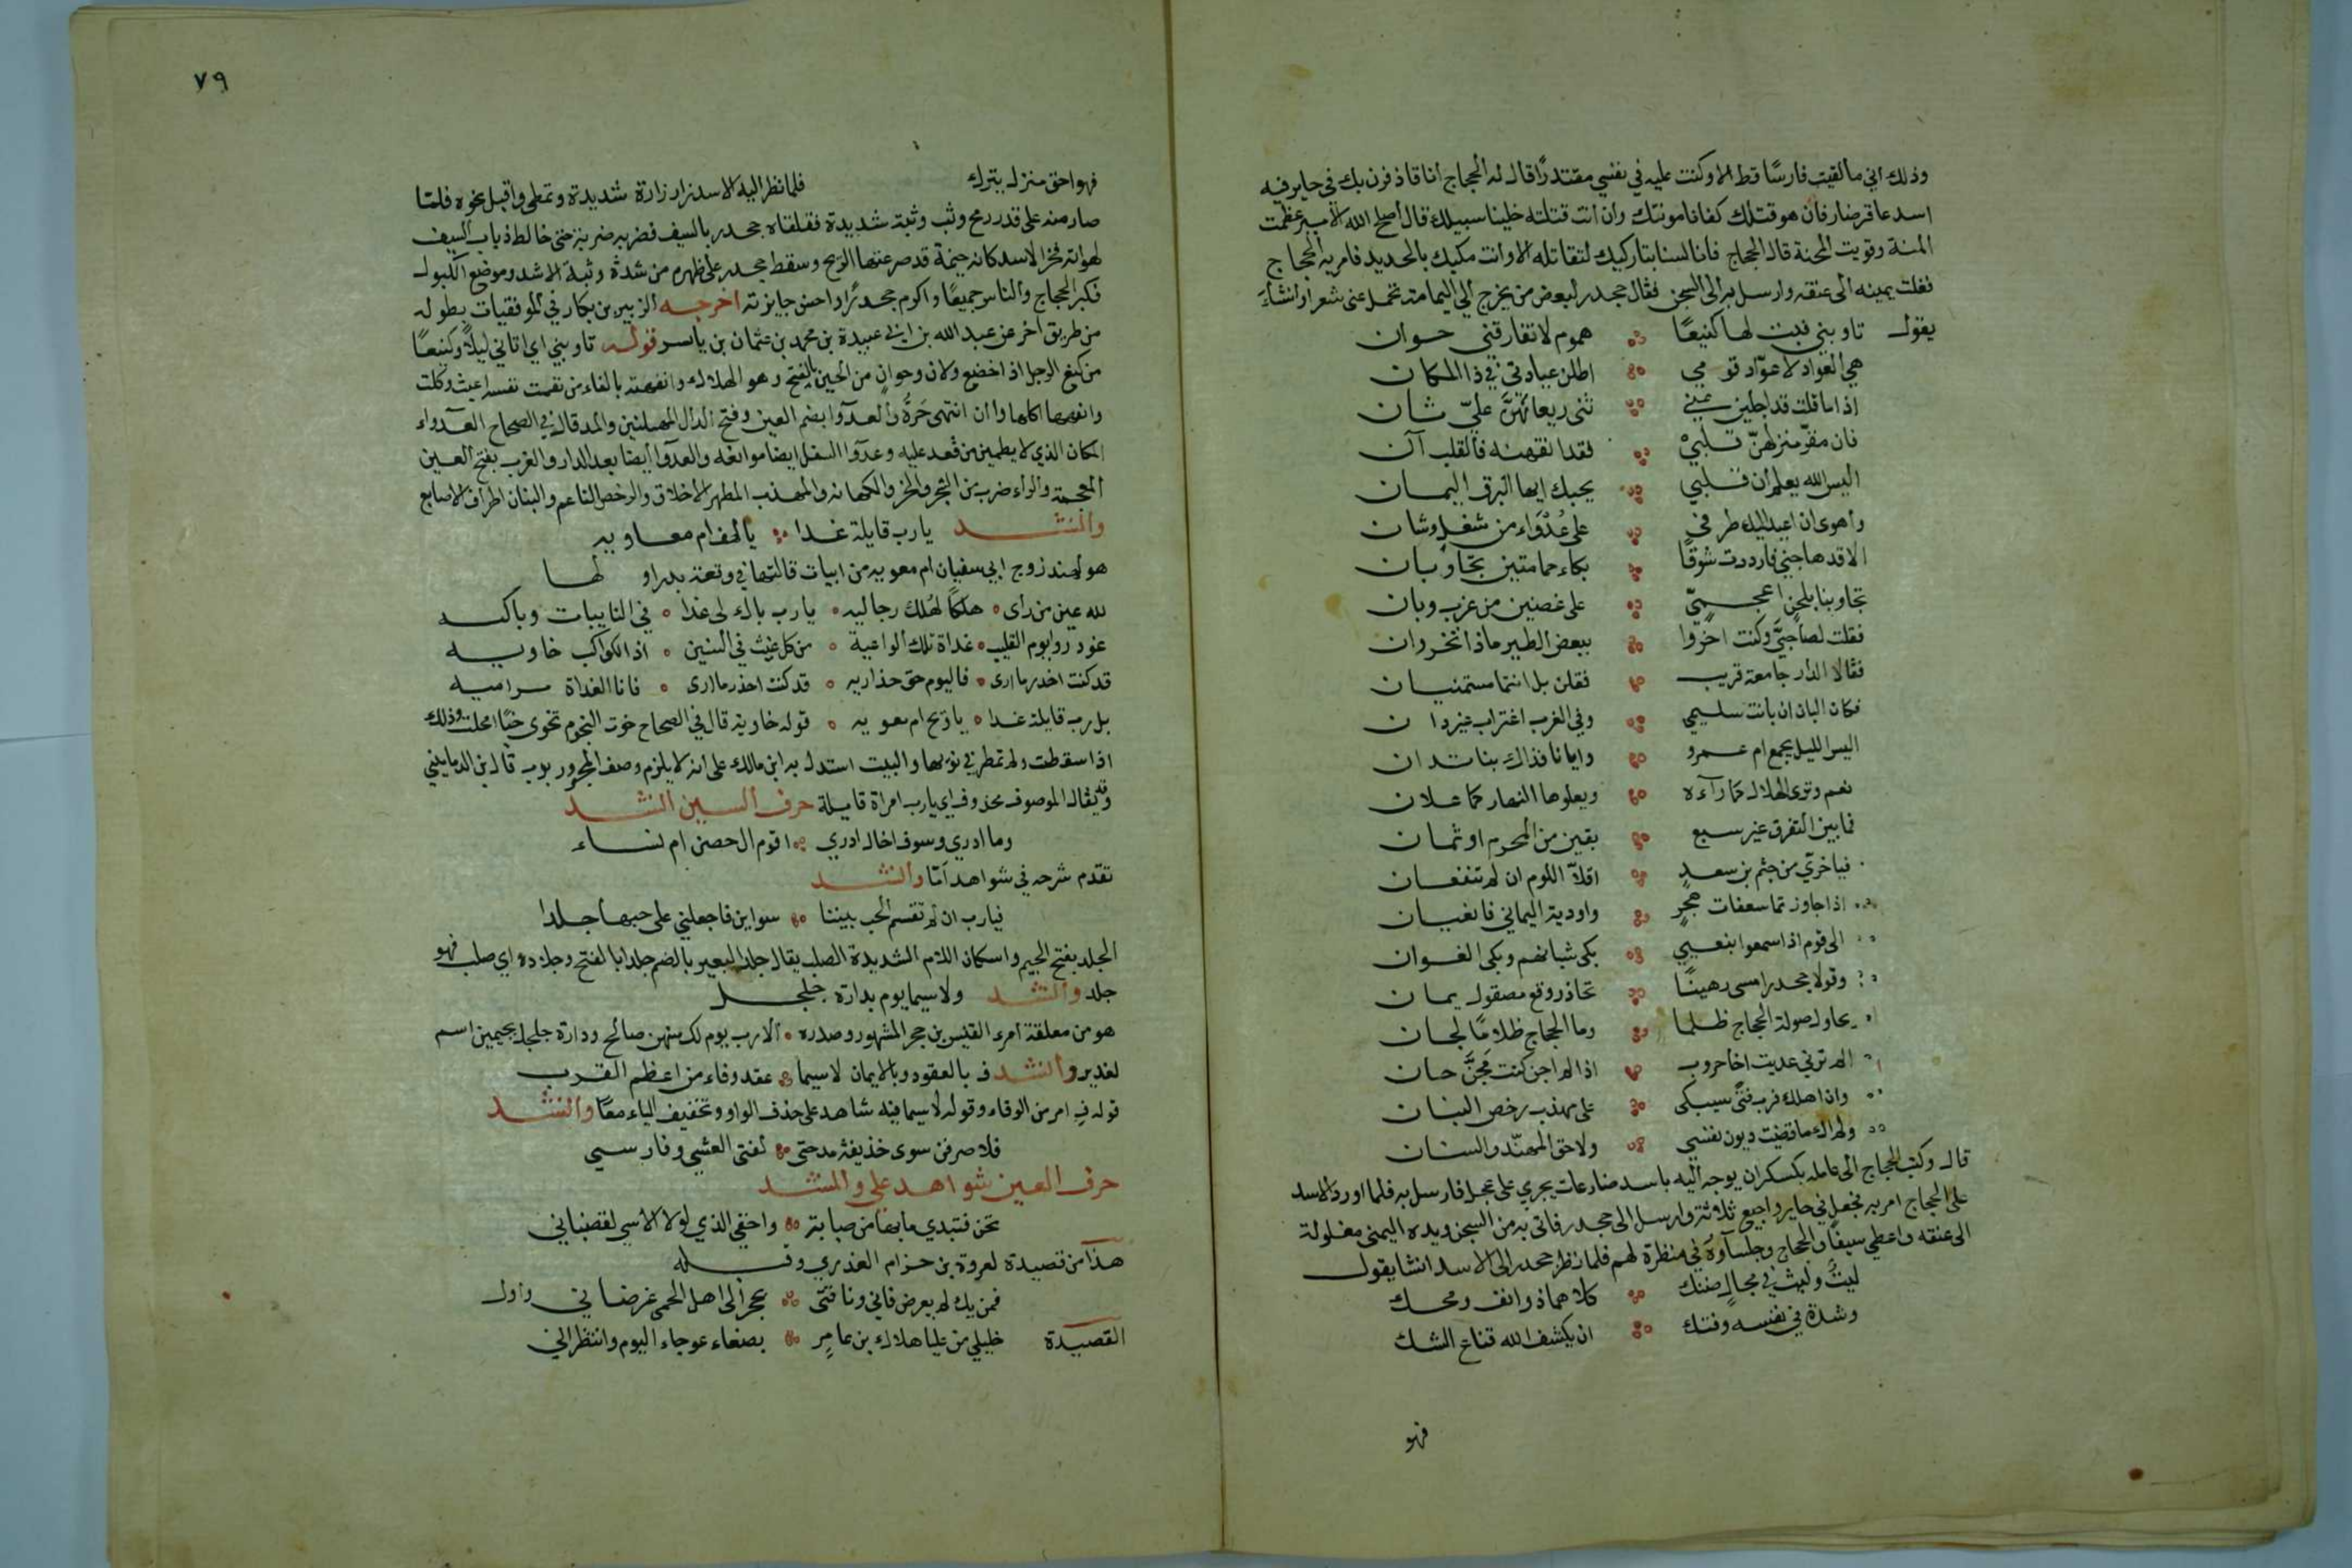 وذلك اني ما لقيت فارسًا قط الا وكنت عليه في نفسي مقتدرًا قال له الحجاج انا قاذفون بك في حاير فيه
اسد عاقر ضار فان هو قتلك كفانا مونتك وان انت قتلته خلينا سبيلك قال اصلح الله الامير عظمت
المنة وقويت المحنة قال الحجاج فانا لسنا بتاركيك لتقاتله الا وانت مكبل بالحديد فامر به الحجاج
فغلت يمينه الى عنقه وارسل به الى السجن فقال جحدر لبعض من يخرج الى اليمامة تحمل عني شعرا وانشاء
يقول تاوبني فبت لها كنيعًا هموم لا تفارقني حوان
هي العواد لا عوّاد قومي اطلن عيادتي في ذا المكان
اذا ما قلت قد اجلين عني ثنى ريعانهنّ عليّ شان
فان مقرّ منزلهنّ قلبي فقد انقهنه فالقلب آن
اليس الله يعلم أن قلبي يحبك ايها البرق اليمان
واهوى ان اعيد اليك طرفي على عُدَوَاء من شغل وشان
الا قد هاجني فازددت شوقًا بكاء حمامتين تجاوبان
تجاوبتا بلحن اعجميّ على غصنين من غرب وبان
فقلت لصاحبيَّ وكنت احزوا ببعض الطير ماذا تخروان
فقالا الدار جامعة قريب فقلن بل انتما متمنيان
فكان البان ان بانت سليمى وفي الغرب اغتراب غير دان
اليس الليل يجمع ام عمرو وايانا فذاك بنا تدان
نعم وترى الهلال كما رآه ويعلوها النهار كما علان
فما بين التفرق غير سبع بقين من المحرم او ثمان
فيا خوي من جشم بن سعد اقلا اللوم ان لم تنفعان
اذا جاوزتما سعفات حجرٍ واودية اليماني فانعيان
الى قوم اذا سمعوا بنعيي بكى شبانهم وبكى الغوان
وقولا جحدر امسى رهينًا تحاذر وقع مصقول يمان
يحاول صولة الحجاج ظلما وما الحجاج ظلامًا لجان
الم ترني عديت اخا حروب اذا لم اجن كنت مجنَّ جان
وان اهلك فرب فتًى سيبكى على مهذب رخص البنان
ولم اك ما قضيت ديون نفسي ولا حق المهنّد والسنان
قال وكتب الحجاج الى عامله بكسكر ان يوجه اليه باسد ضار عات يجري على عجل فارسل به فلما اورد الاسد
على الحجاج امر به فجعل في حاير واجيع ثلاثة وارسل الى جحدر فاتي به من السجن ويده اليمنى مغلولة
الى عنقه واعطي سيفًا والحجاج وجلساؤه في منظرة لهم فلما نظر جحدر الى الاسد انشا يقول
ليثٌ وليث في مجال ضنك كلاهما ذو انف ومحك
وشدة في نفسه وفتك ان يكشف الله قناع الشك
فهو
٧٩
فهو احق منزل بترك فلما نظر اليه الاسد زار زارة شديدة وتمطى واقبل نحوه فلما
صار منه على قدر رمح وثب وثبة شديدة فتلقاه جحدر بالسيف فضربه ضربة حتى خالط ذباب السيف
لهواته فخر الاسد كانه خيمة قد صرعتها الريح وسقط جحدر على ظهره من شدة وثبة الاسد وموضع الكبول
فكبر الحجاج والناس جميعًا واكرم جحدرًا واحسن جايزته اخرجه الزبير بن بكار في الموفقيات بطوله
من طريق اخر عن عبد الله بن ابي عبيدة بن محمد بن عثمان بن ياسر قوله تاوبني اي اتاني ليلًا وكنيعًا
من كنع الرجل اذا خضع ولان وحوان من الحين بالفتح وهو الهلاك وانفهته بالفاء من نفهت نفسه اعيت وكلت
وانفهها اكلها وآن انتهى حرّه والعدآوا بضم العين وفتح الدال المهملتين والمد قال في الصحاح العدآواء
المكان الذي لا يطمين من قعد عليه وعدوآ الشغل ايضا موانعه والعدوآ ايضا بعد الدار والغرب بفتح العين
المعجمة والراء ضرب من الشجر والمهذب المطهر الاخلاق والرخص الناعم والبنان اطراف الاصابع
وانشد يا رب قايلة غدا يا لهف ام معاويه
هو لهند زوج ابي سفيان ام معويه من ابيات قالتها في وقعة بدر اولها
لله عين من راى هلكًا لهلك رجاليه يا رب باك لي غدا في النايبات وباكيه
غودروا يوم القليب غداة تلك الواعية من كل غيث في السنين اذا الكواكب خاويه
قد كنت احذر ما ارى فاليوم حق حذاريه قد كنت احذر ما ارى فانا الغداة مراميه
بل رب قايلة غدا يا ويح ام معويه قوله خاوية قال في الصحاح خوت النجوم تخوى خيًا امحلت وذلك
اذا سقطت ولم تمطر في نوءها والبيت استدل به ابن مالك على انه لا يلزم وصف المجرور برب قال بن الدماميني
وقد يقال الموصوف محذوف اي يا رب امراة قايلة حرف السين انشد
وما ادري وسوف اخال ادري اقوم ال حصن ام نساء
تقدم شرحه في شواهد امّا وانشد
فيا رب ان لم تقسم الحب بيننا سواين فاجعلني على حبها جلدا
الجلد بفتح الجيم واسكان اللام الشديدة الصلب يقال جلد البعير بالضم جلدا بالفتح وجلاده اي صلب فهو
جلد وانشد ولا سيما يوم بدارة جلجل
هو من معلقة امرء القيس بن حجر المشهور وصدره الا رب يوم لك منهن صالح ودارة جلجل بجيمين اسم
لغدير وانشد فِ بالعقود وبالايمان لا سيما عقد وفاء من اعظم القرب
قوله فِ امر من الوفاء وقوله لا سيما فيه شاهد على حذف الواو وتخفيف الياء معًا وانشد
فلا صرفن سوى حذيفة مدحتى لفتى العشي وفارسي
حرف العين شواهد على وانشد
تحن فتبدي ما بها من صبابة واخفي الذي لولا الاسى لقضاني
هذا من قصيدة لعروة بن حزام العذري وقبله
فمن يك لم يعرض فاني وناقتى بحجر الى اهل الحمى غرضاني واول
القصيدة خليلي من عليا هلال بن عامرٍ بصنعاء عوجاء اليوم وانتظراني